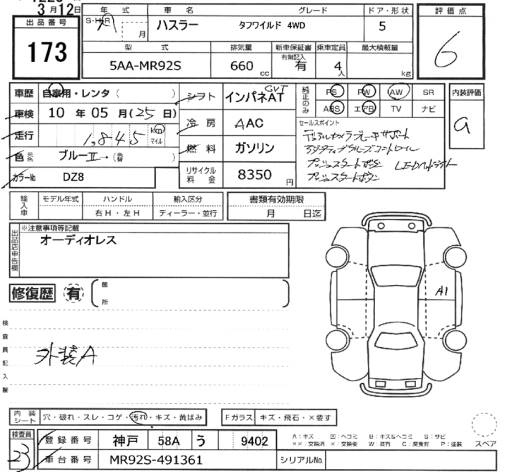 3月12日
出品番号
173
年式
S・H・R
月
車名
ハスラー
グレード
タフワイルド 4WD
ドア・形状
5
評価点
6
型式
5AA-MR92S
排気量
660 cc
新車保証書
有無記入
有
乗車定員
4人
最大積載量
kg
車歴
自家用・レンタ( )
車検
10年 05月(25日)
走行
1,845 km マイル
色
ブルーⅡ→( )
カラー№
DZ8
シフト
インパネAT CVT
冷房
AAC
燃料
ガソリン
リサイクル料金
8350 円
純正のみ
PS PW AW SR
ABS エアB TV ナビ
セールスポイント
デュアルセンサブレーキサポート
アダプティブクルーズコントロール
プッシュスタートボタン LEDヘッドライト
プッシュスタートボタン
内装評価
a
輸入車
モデル年式
ハンドル
右H・左H
輸入区分
ディーラー・並行
書類有効期限
月 日迄
出品店申告欄
※注意事項等記載
オーディオレス
修復歴
有
箇所
検査員記入欄
外装A
A1
内装
シート
穴・破れ・スレ・コゲ・汚れ・キズ・黄ばみ
Fガラス
キズ・飛石・×要す
検査員
23
登録番号
神戸 58A う 9402
車台番号
MR92S-491361
シリアルNo.
A:キズ U:ヘコミ B:キズ&ヘコミ S:サビ
スペア